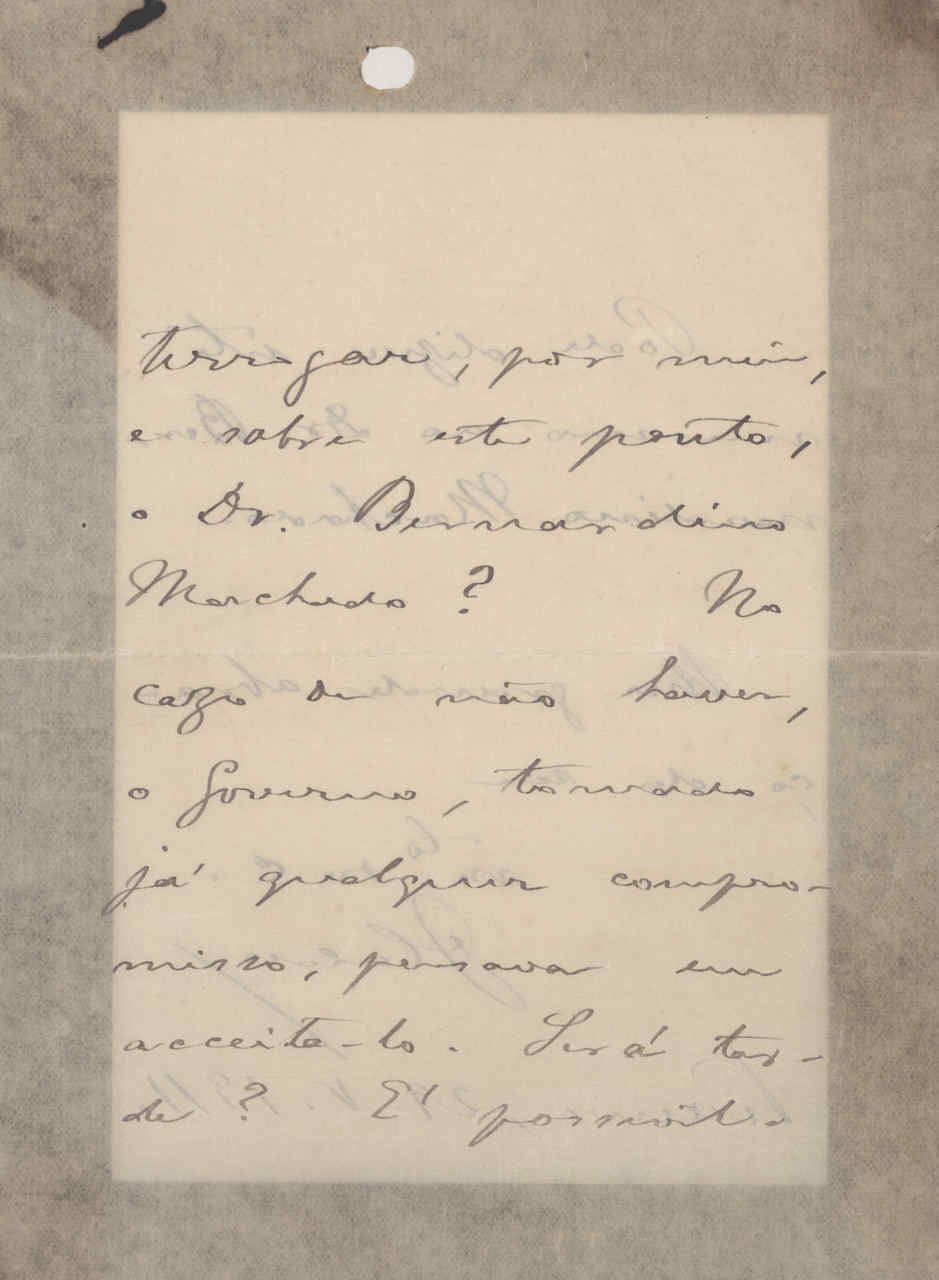 terrogar, por mim,
e sobre este ponto,
o Dr. Bernardino
Machado? No
cazo de não haver,
o Governo, tomado
já qualquer compro-
misso, pensava em
acceita-lo. Será tar-
de? É possivel.